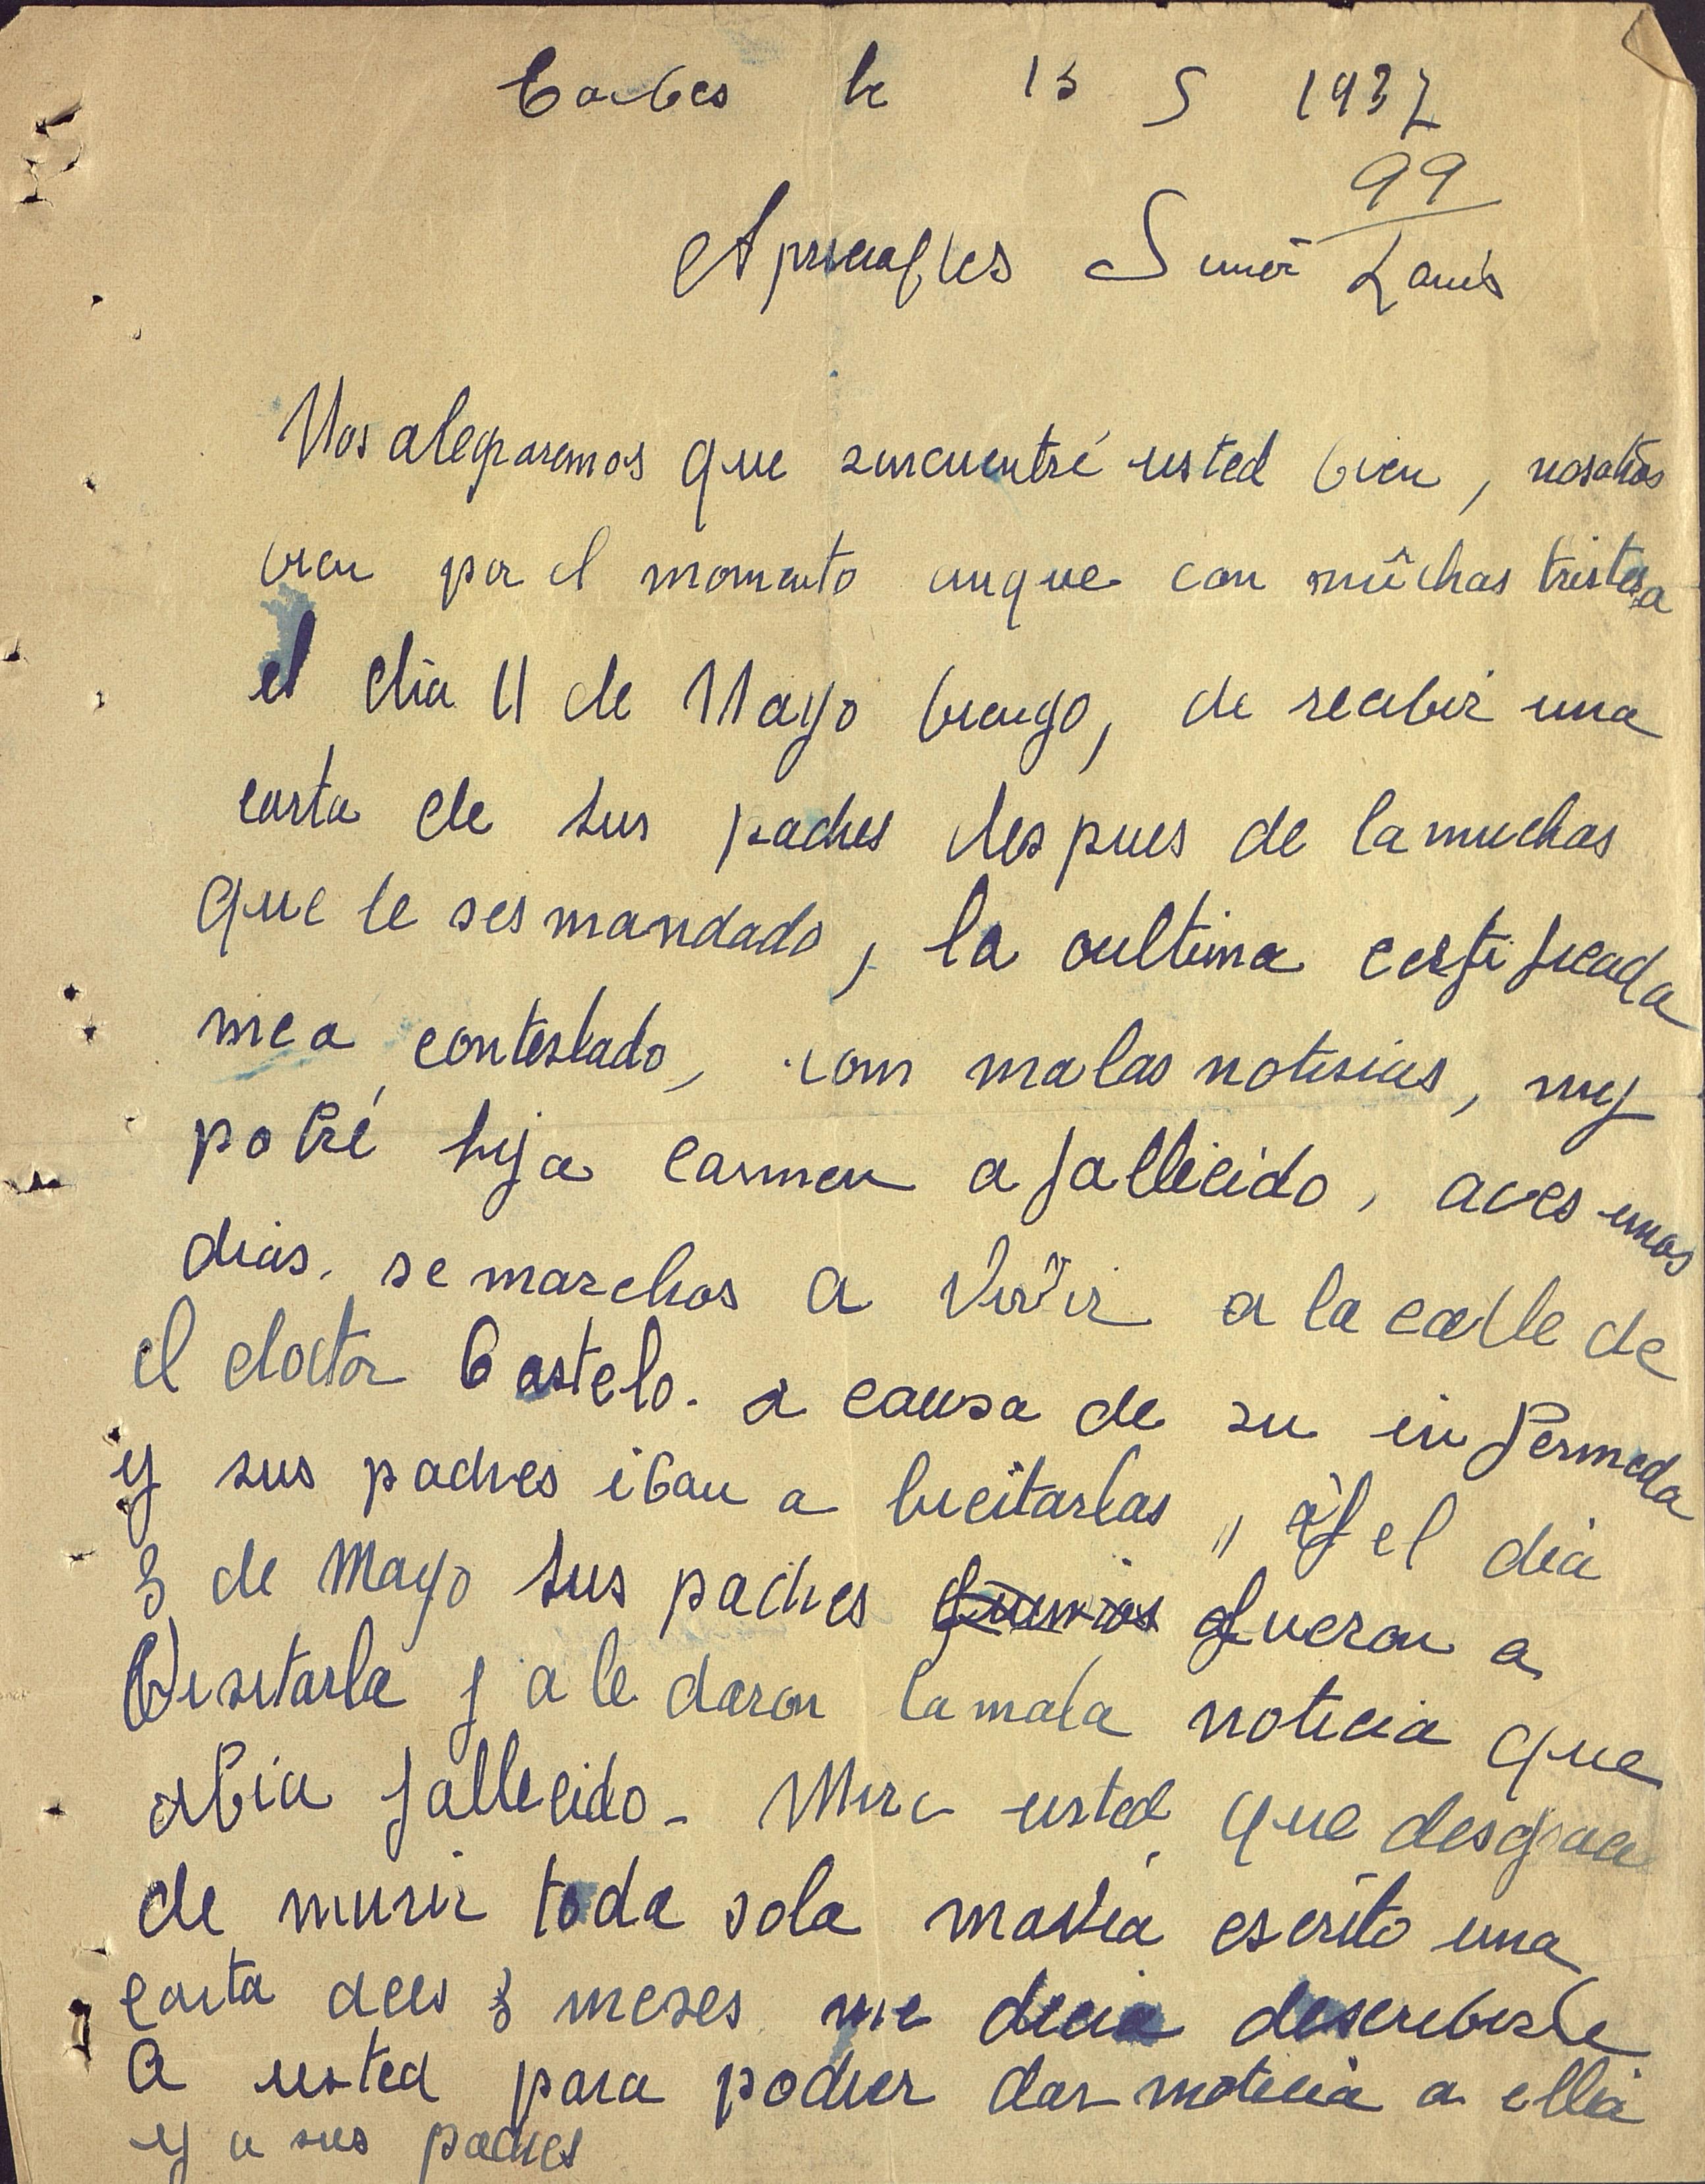 le 13 5 1937
99
Apreciables Luis
Nos alegraremos que encuentré usted bien, nosotros
bien por el momento unque con mûchas tristesa
el dia 11 de Mayo biengo, de recibir una
carta de sus padres despues de la muchas
que le ses mandado, la oultima certificada
me a contestado, com malas notisias, my
pobré hija Carmen a fallecido, aces unos
dias. se marchos a Vivir a la calle de
el doctor Castelo. a causa de su in fermeda
y sus padres iban a bicitarlas, y el dia
3 de Mayo sus padres fueron a
Visitarla y a le daron la mala noticia que
abia fallecido - Mire usted que desgracia
de murir toda sola mavia escrito una
carta aces 3 meses me decia describirle
a usted para poduer dar noticia a ella
y a sus padres